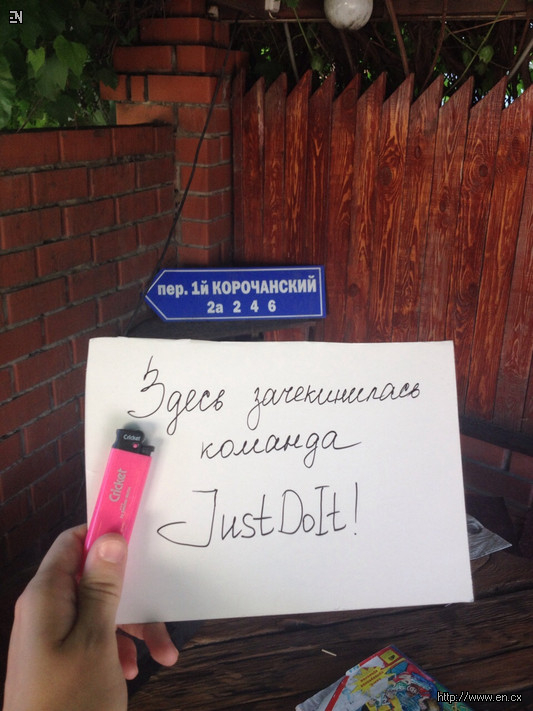 EN
пер. 1й КОРОЧАНСКИЙ
2а 2 4 6
Здесь зачекинилась
команда
JustDoIt!
Cricket
Cricket
http://www.en.cx